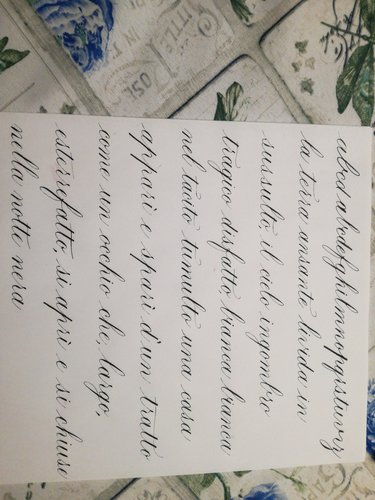 abcd abcdefghilmnopqrstuvz
la terra ansante livida in
sussulto; il cielo ingombro
tragico disfatto; bianca bianca
nel tacito tumulto una casa
apparì e sparì d'un tratto
come un occhio che, largo,
esterrefatto, si aprì e si chiuse
nella notte nera
LITTLE